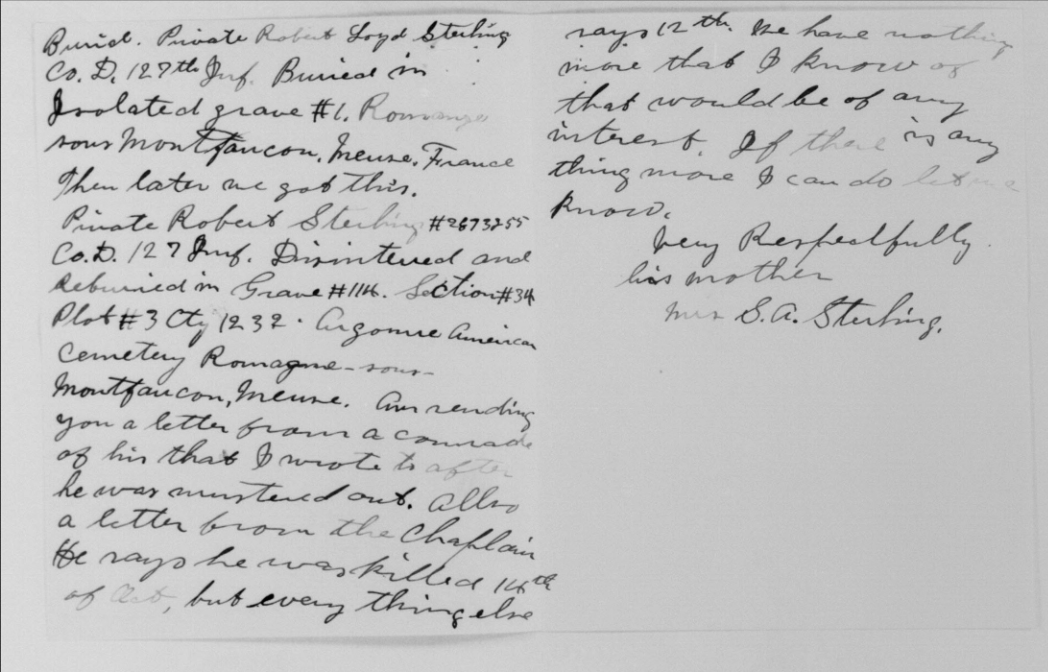 Buried. Private Robert Loyd Sterling
Co. D. 127th Inf. Buried in
Isolated grave #1. Romange
sous Montfaucon, Meuse, France
Then later we got this.
Private Robert Sterling #2673255
Co. D. 127 Inf. Disintered and
Reburied in Grave #114. Section #34
Plot #3 Cty 1232. Argonne American
Cemetery Romagne-sous-
Montfaucon, Meuse. Am sending
you a letter from a comrade
of his that I wrote to after
he was mustered out. Allso
a letter from the Chaplain
He says he was killed 14th
of Oct, but every thing else
says 12th. We have nothing
more that I know of
that would be of any
interest. If there is any
thing more I can do let me
know.
Very Respectfully
his mother
Mrs S.A. Sterling.